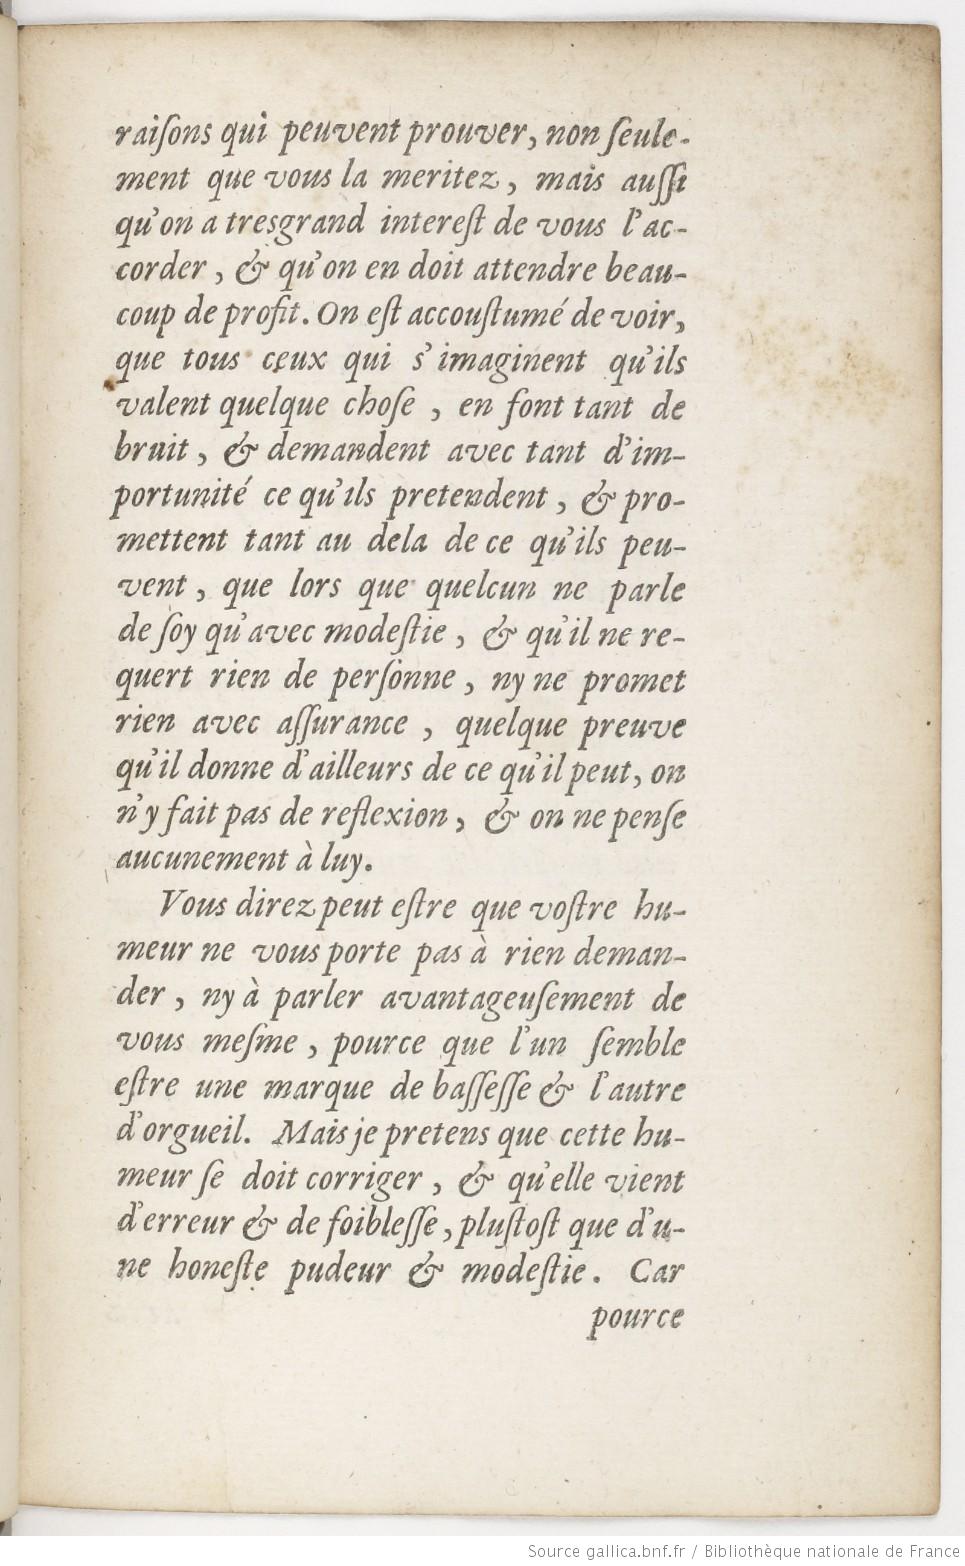 raiſons qui peuvent prouver, non ſeule-
ment que vous la meritez, mais auſſi
qu'on a tresgrand intereſt de vous l'ac-
corder, & qu'on en doit attendre beau-
coup de profit. On eſt accouſtumé de voir,
que tous ceux qui s'imaginent qu'ils
valent quelque choſe, en font tant de
bruit, & demandent avec tant d'im-
portunité ce qu'ils pretendent, & pro-
mettent tant au dela de ce qu'ils peu-
vent, que lors que quelcun ne parle
de ſoy qu'avec modeſtie, & qu'il ne re-
quert rien de perſonne, ny ne promet
rien avec aſſurance, quelque preuve
qu'il donne d'ailleurs de ce qu'il peut, on
n'y fait pas de reflexion, & on ne penſe
aucunement à luy.
Vous direz peut eſtre que voſtre hu-
meur ne vous porte pas à rien deman-
der, ny à parler avantageuſement de
vous meſme, pource que l'un ſemble
eſtre une marque de baſſeſſe & l'autre
d'orgueil. Mais je pretens que cette hu-
meur ſe doit corriger, & qu'elle vient
d'erreur & de foibleſſe, pluſtoſt que d'u-
ne honeſte pudeur & modeſtie. Car
pource
Source gallica.bnf.fr / Bibliothèque nationale de France